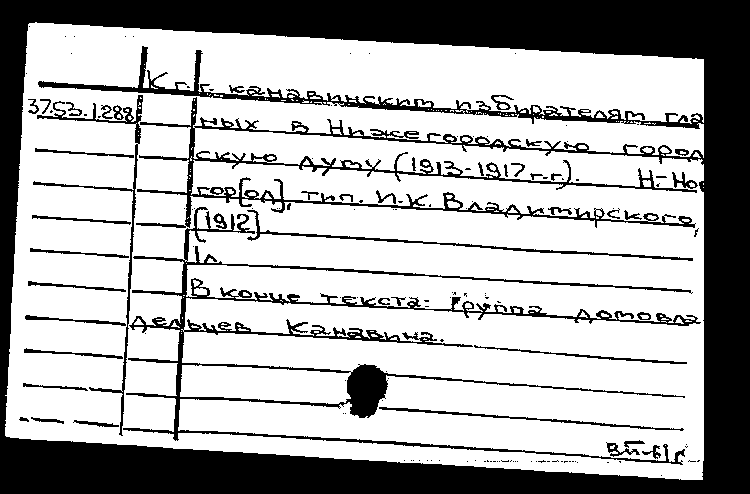 К г.г. канавинским избирателям гла
37.53.1.288
ных в Нижегородскую город
скую думу (1913-1917 г.г.). Н.-Нов
гор[од], тип. И.К. Владимирского,
[1912].
1л.
В конце текста: Группа домовла
дельцев Канавина.